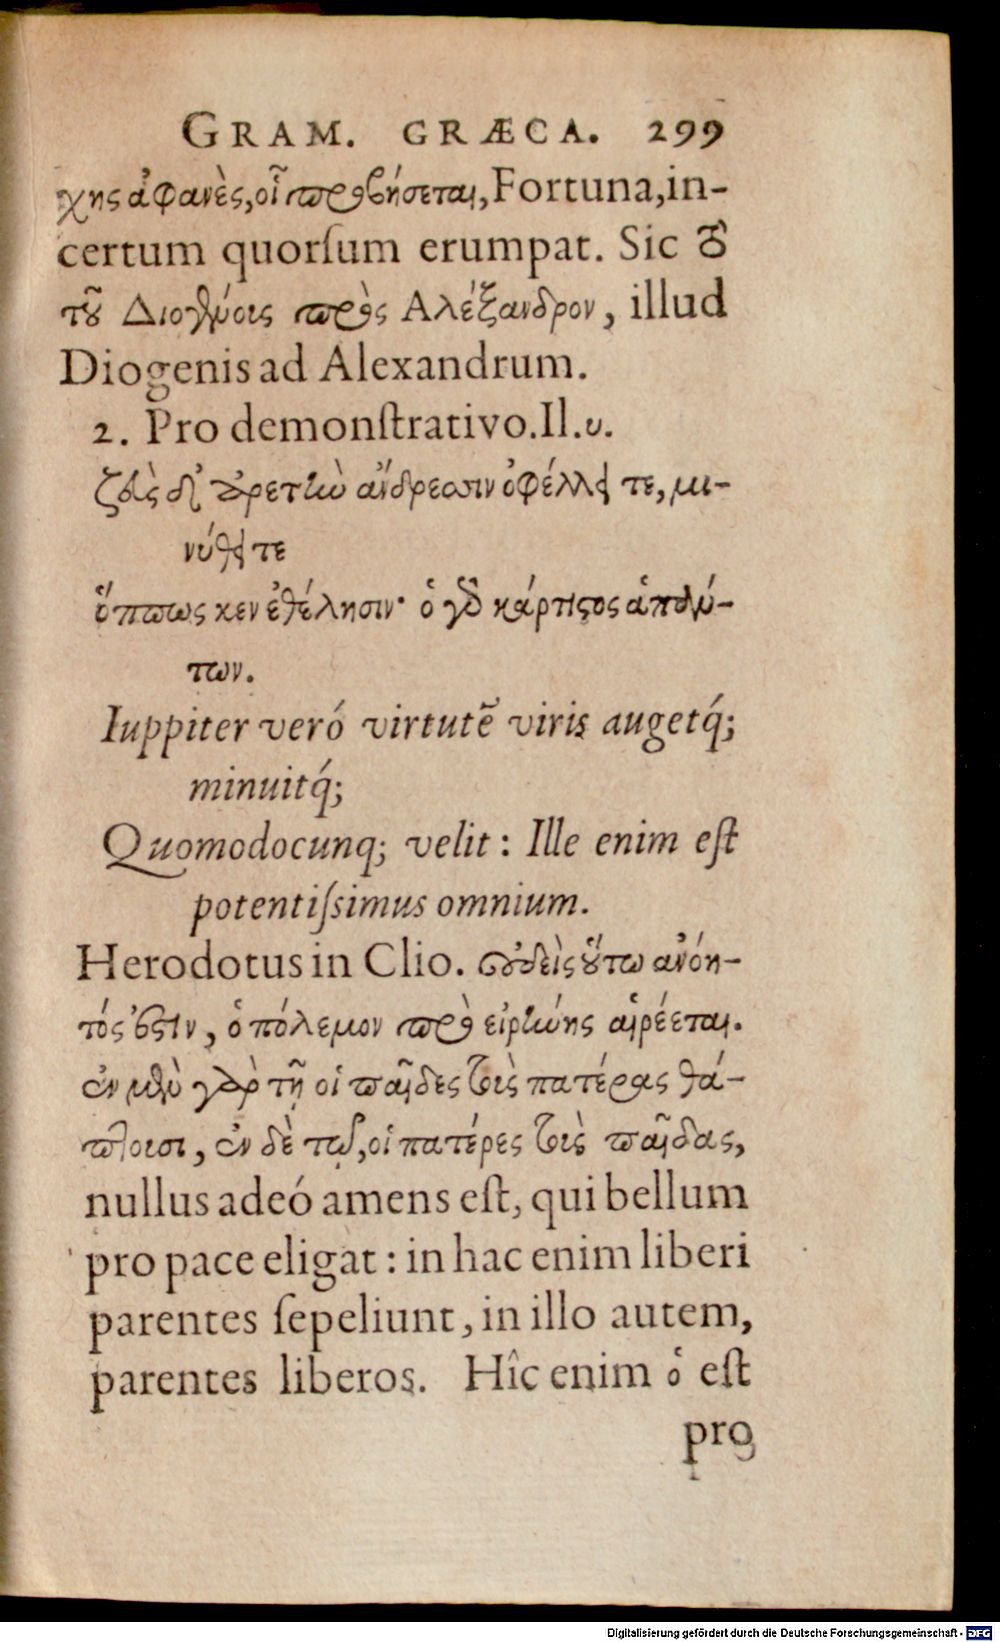 GRAM. GRÆCA. 299
χης ἀφανὲς, οἷ προβήσεται, Fortuna, in-
certum quorſum erumpat. Sic τὸ
τοῦ Διογένοις πρὸς Αλέξανδρον, illud
Diogenis ad Alexandrum.
2. Pro demonſtrativo. Il. υ.
ζεὺς δ' ἀρετὴν ἄνδρεσσιν ὀφέλλει τε, μι-
νύθει τε
ὅππως κεν ἐθέλησιν· ὁ γὰρ κάρτιστος ἁπάν-
των.
Iuppiter veró virtutē viris augetq́;
minuitq́;
Quomodocunq; velit: Ille enim eſt
potentiſsimus omnium.
Herodotus in Clio. οὐδεὶς οὕτω ἀνόη-
τός ἐστιν, ὁ πόλεμον πρὸ εἰρήνης αἱρέεται.
ἐν μὲν γὰρ τῇ οἱ παῖδες τοὺς πατέρας θά-
πτοισι, ἐν δὲ τῷ, οἱ πατέρες τοὺς παῖδας,
nullus adeó amens eſt, qui bellum
pro pace eligat: in hac enim liberi
parentes ſepeliunt, in illo autem,
parentes liberos. Hîc enim ὁ eſt
pro
Digitalisierung gefördert durch die Deutsche Forschungsgemeinschaft - DFG